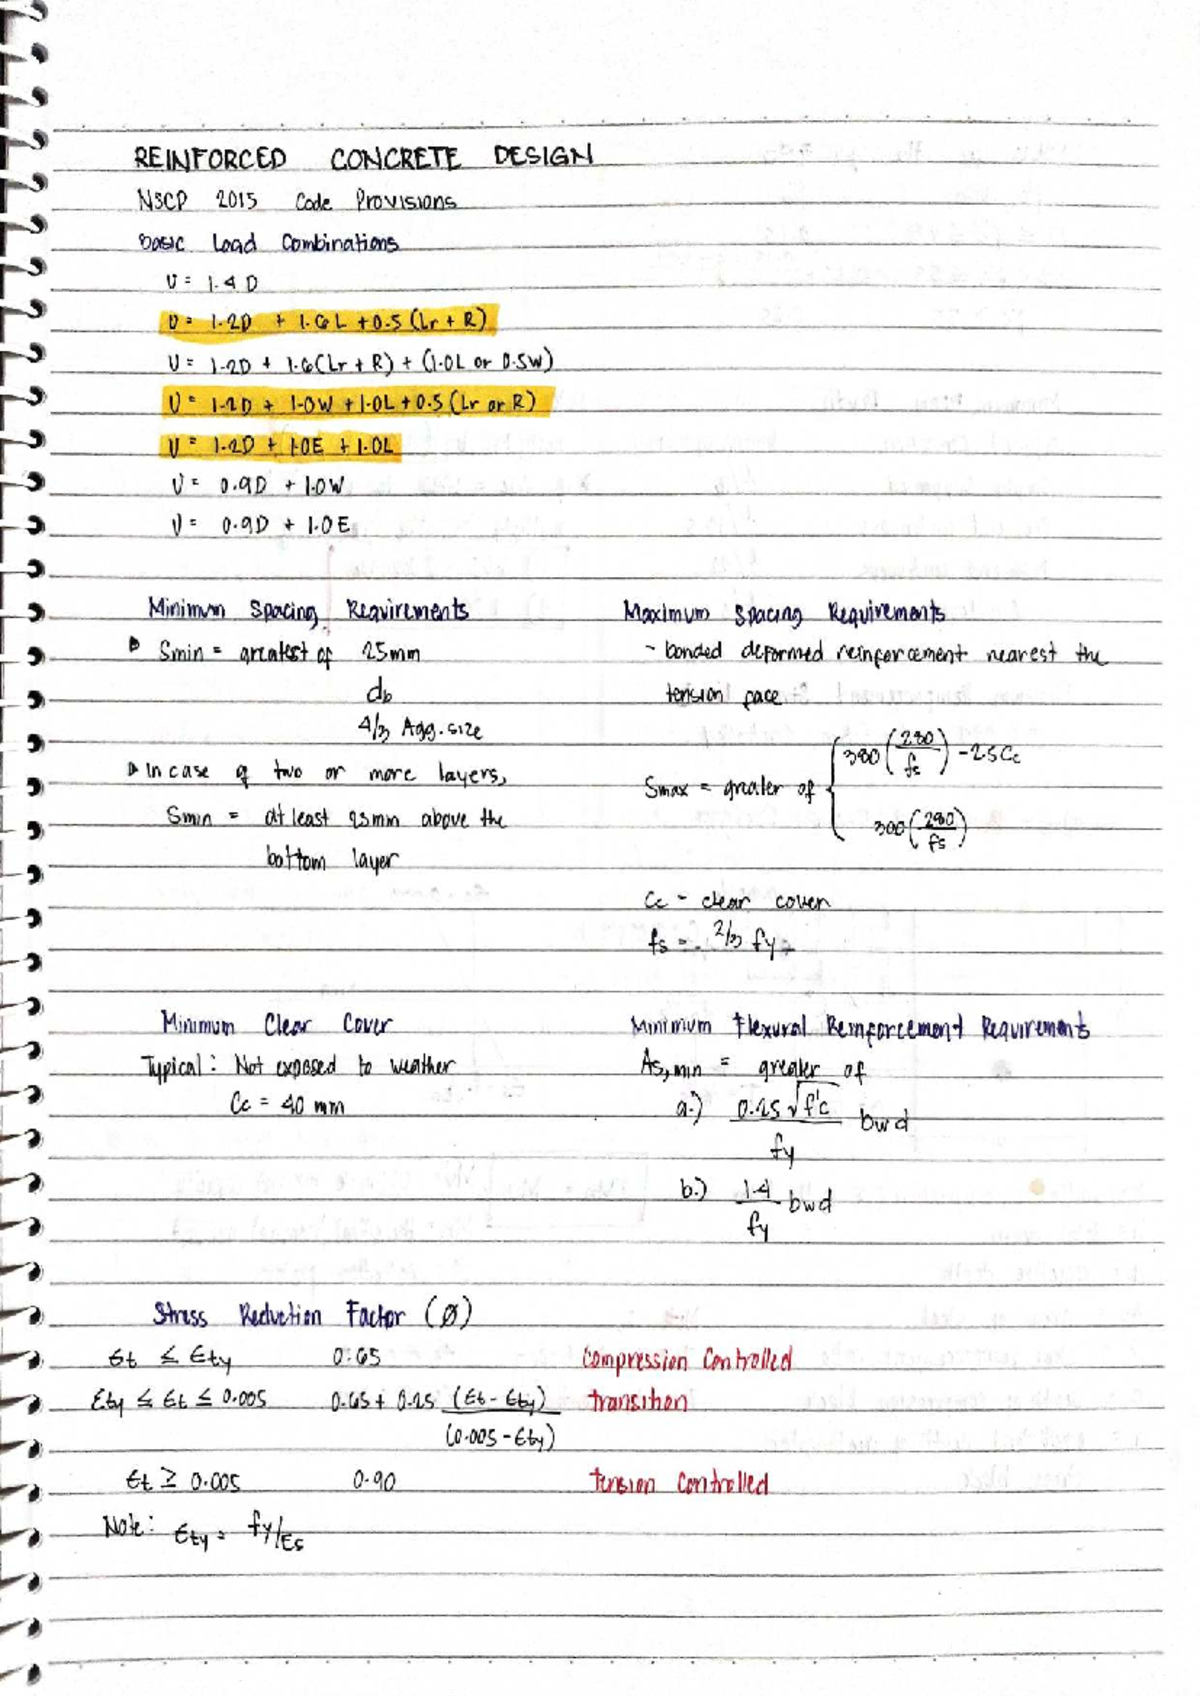 REINFORCED CONCRETE DESIGN
NSCP 2015 Code Provisions
Basic Load Combinations
U = 1.4 D
U = 1.2D + 1.6L + 0.5 (Lr + R)
U = 1.2D + 1.6(Lr + R) + (1.0L or 0.5W)
U = 1.2D + 1.0W + 1.0L + 0.5 (Lr or R)
U = 1.2D + 1.0E + 1.0L
U = 0.9D + 1.0W
U = 0.9D + 1.0E
Minimum Spacing Requirements
Smin = greatest of 25mm
db
4/3 Agg. size
In case of two or more layers,
Smin = at least 25mm above the
bottom layer
Maximum Spacing Requirements
- bonded deformed reinforcement nearest the
tension face
Smax = greater of { 380 (280/fs) - 2.5Cc
300 (280/fs)
Cc - clear cover
fs = 2/3 fy
Minimum Clear Cover
Typical: Not exposed to weather
Cc = 40 mm
Minimum Flexural Reinforcement Requirements
As,min = greater of
a.) 0.25 √f'c / fy bwd
b.) 1.4 / fy bwd
Stress Reduction Factor (Ø)
Єt ≤ Єty 0.65 Compression Controlled
Єty ≤ Єt ≤ 0.005 0.65 + 0.25 (Єt - Єty) / (0.005 - Єty) transition
Єt ≥ 0.005 0.90 tension Controlled
Note: Єty = fy/Es